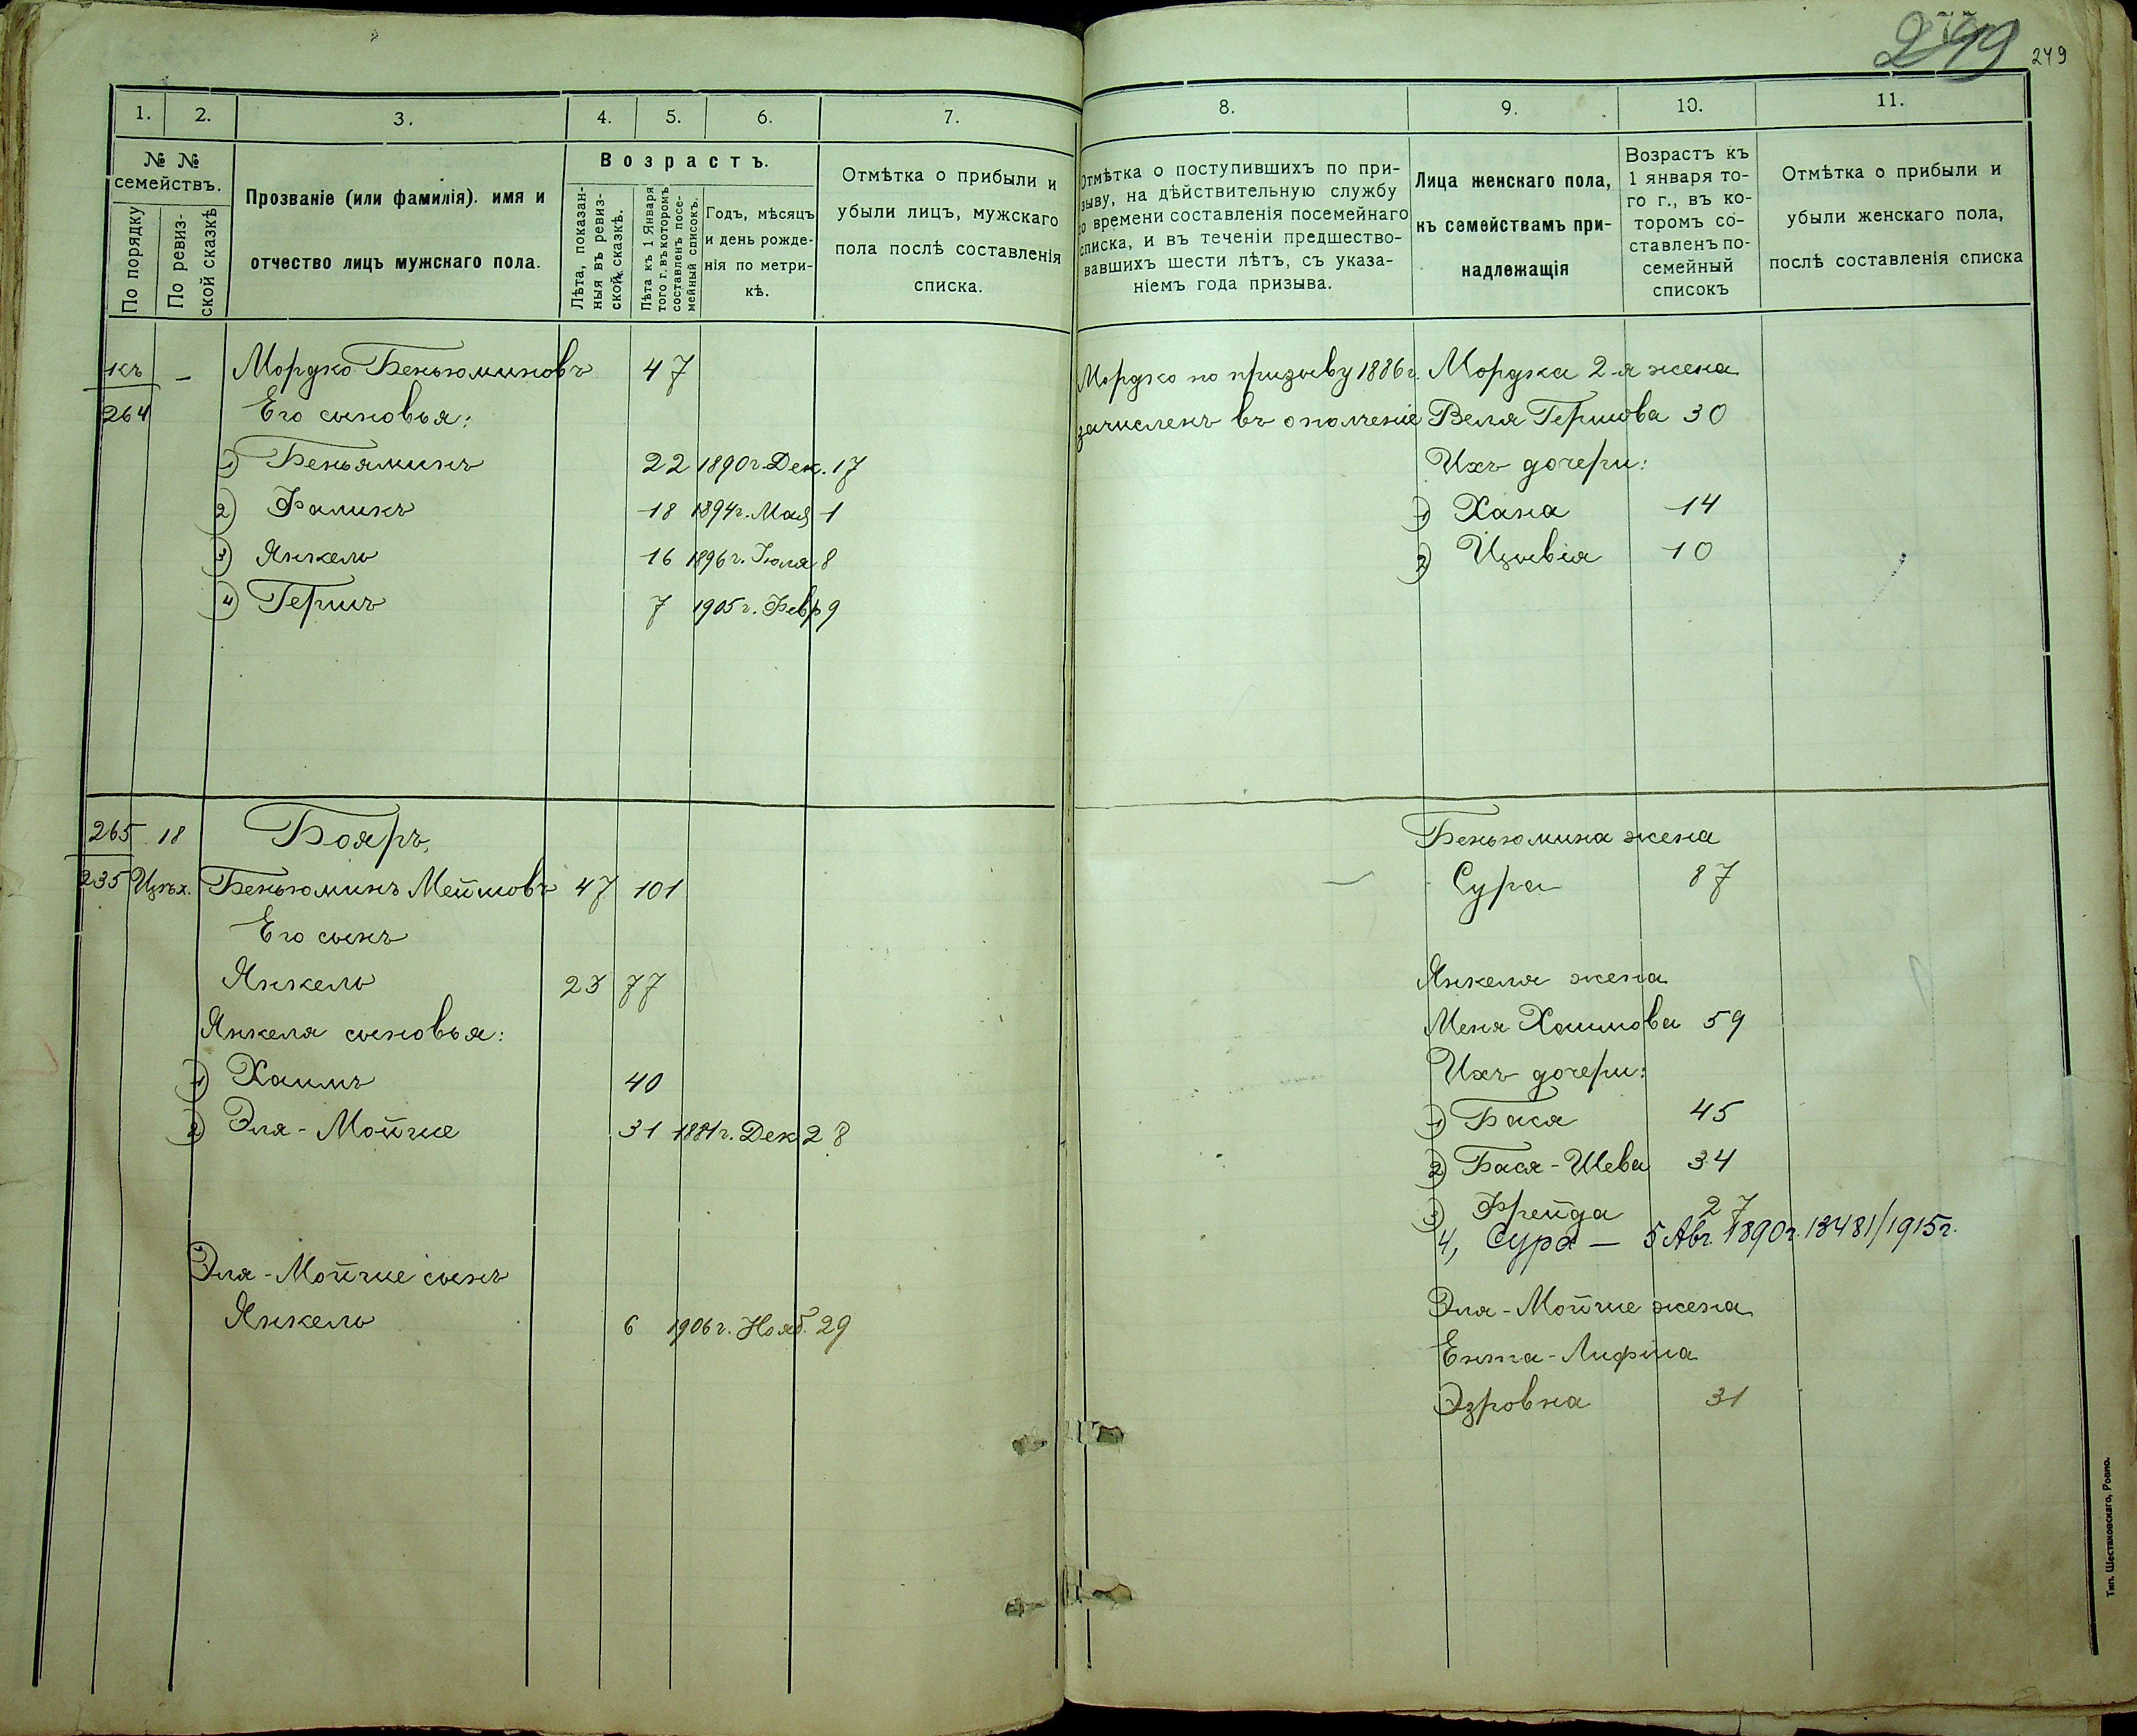 299
249
1. 2. 3. 4. 5. 6. 7.
№ № семействъ.
По порядку
По ревизской сказкѣ
Прозваніе (или фамилія). имя и
отчество лицъ мужскаго пола.
Возрастъ.
Лѣта, показан-
ныя въ ревиз-
ской сказкѣ.
Лѣта къ 1 Января
того г. въ которомъ
составленъ посе-
мейный списокъ.
Годъ, мѣсяцъ
и день рожде-
нія по метри-
кѣ.
Отмѣтка о прибыли и
убыли лицъ, мужскаго
пола послѣ составленія
списка.
къ — Мордко Беньюминовъ 47
264 Его сыновья:
1) Беньяминъ 22 1890 г. Дек. 17
2) Фаликъ 18 1894 г. Мая 1
3) Янкель 16 1896 г. Іюля 8
4) Гершъ 7 1905 г. Февр 9
265 18 Бояръ,
235 Беньюминъ Мейшовъ 47 101
Его сынъ
Янкель 23 77
Янкеля сыновья:
1) Хаимъ 40
2) Эля-Мойше 31 1881 г. Дек 28
Эля-Мойше сынъ
Янкель 6 1906 г. Нояб. 29
8. 9. 10. 11.
Отмѣтка о поступившихъ по при-
зыву, на дѣйствительную службу
до времени составленія посемейнаго
списка, и въ теченіи предшество-
вавшихъ шести лѣтъ, съ указа-
ніемъ года призыва.
Лица женскаго пола,
къ семействамъ при-
надлежащія
Возрастъ къ
1 января то-
го г., въ ко-
торомъ со-
ставленъ по-
семейный
списокъ
Отмѣтка о прибыли и
убыли женскаго пола,
послѣ составленія списка
Мордко по призыву 1886 г. Мордка 2-я жена
зачисленъ въ ополченіе Веля Гершова 30
Ихъ дочери:
1) Хана 14
2) Цывія 10
Беньюмина жена
— Сура 87
Янкеля жена
Меня Хаимова 59
Ихъ дочери:
1) Бася 45
2) Бася-Шева 34
3) Фрейда 27
4, Сура — 5 Авг. 1890 г. 13481/1915 г.
Эля-Мойше жена
Ента-Лифша
Эзровна 31
Тип. Шестаковскаго, Ровно.